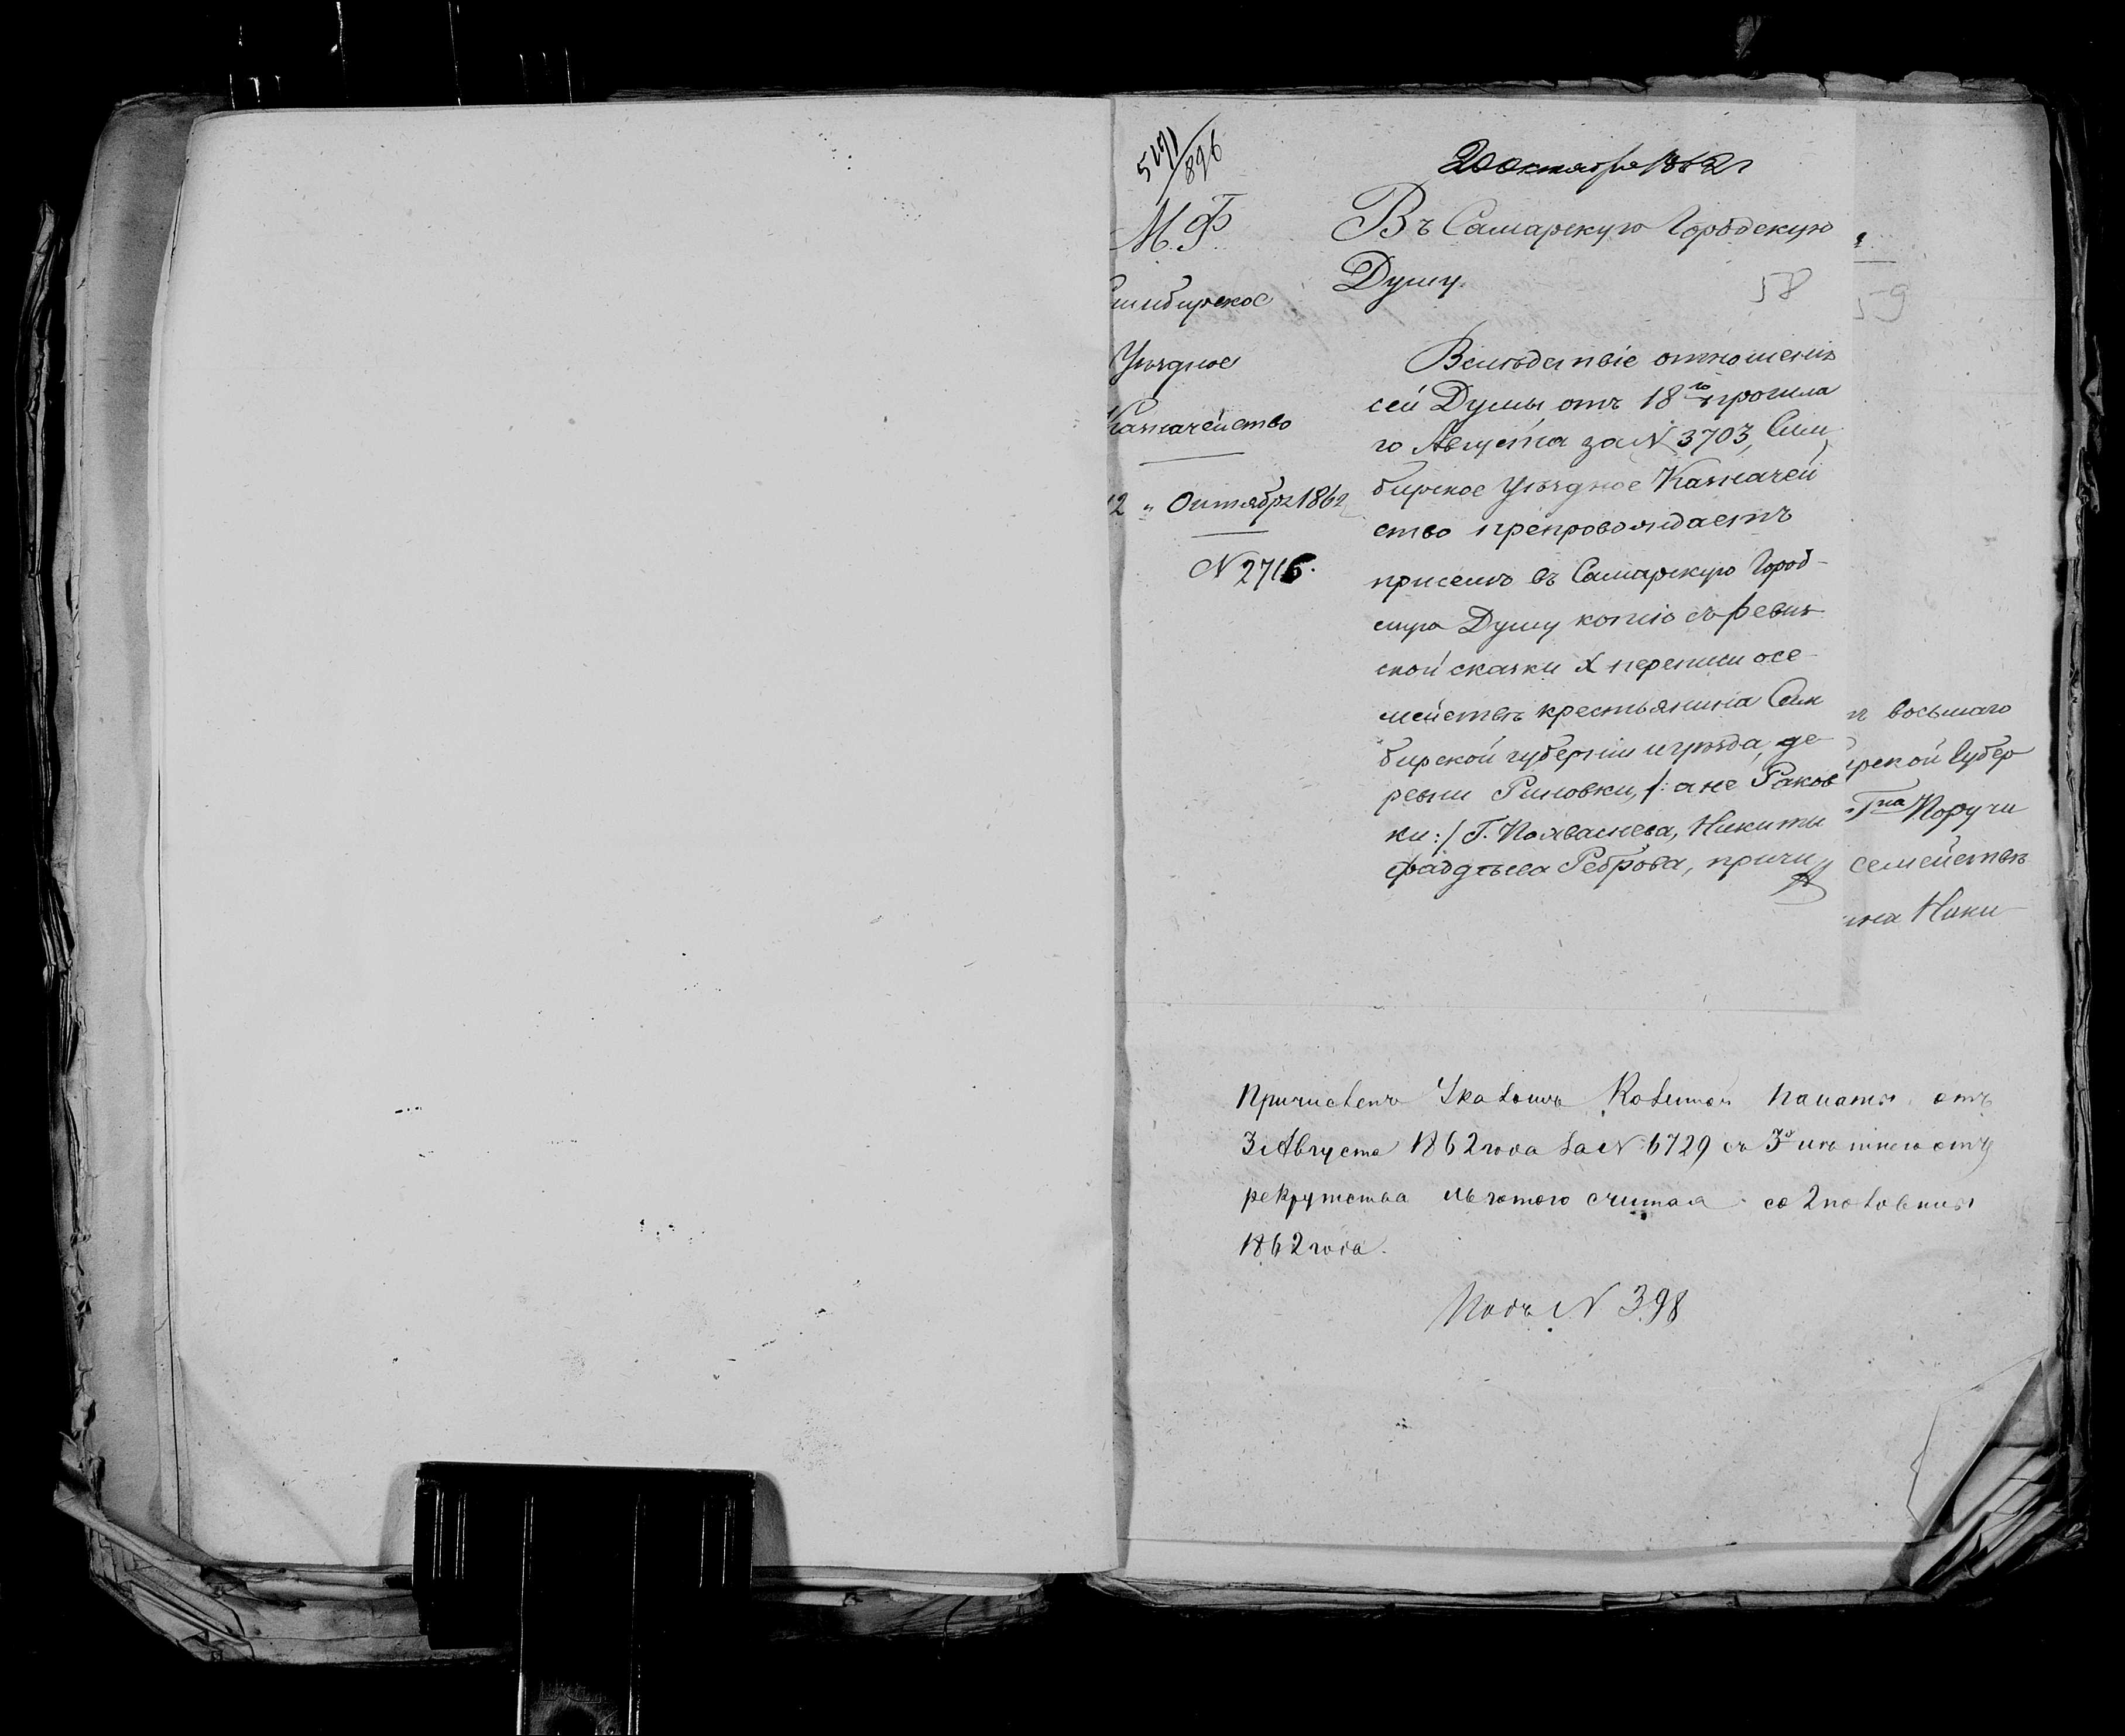 5171/896
20 октября 1862 г
М. Ф.
Симбирское
Уѣздное
Казначейство
12 " Октября 1862
N 2716.
Въ Самарскую Городскую
Думу.
58
59
Вслѣдствіе отношенія
сей Думы отъ 18го прошла
го Августа за N 3703, Сим
бирское Уѣздное Казначей
ство препровождаетъ
присемъ въ Самарскую Город-
скую Думу копію съ ревиз
ской сказки X переписи осе-
мействѣ крестьянина Сим
бирской губерніи и уѣзда, де
ревни Риновки, /: а не Раков
ки :/ Г. Полваснева, Никиты
Фаддѣева Реброва, причи
восьмаго
ирской Губер
Гна Поручи
семействѣ
ина Ники
Причисленъ Указомъ Казенной Палаты отъ
31 Августа 1862 года за N 6729 съ 3х лѣтнею отъ
рекрутства льготою считая со 2 половины
1862 года.
Подъ N 398